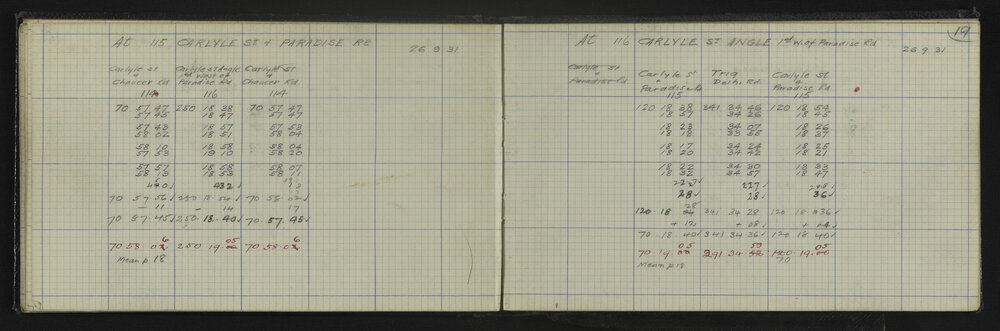 At 115 CARLYLE ST & PARADISE RD 26 9 31
Carlyle St & Chaucer Rd Carlyle St Angle 1st West of Paradise Rd Carlyle St & Chaucer Rd
114 116 114
70 57 47 250 18 38 70 57 47
57 45 18 47 57 47
57 43 18 57 57 53
58 02 18 51 58 04
58 10 18 58 58 04
57 53 19 10 58 20
57 57 18 58 58 07
58 13 18 53 58 11
432
70 57 56
- 11 - 14 17
70 57 45 250 18 40 70 57 45
70 58 06 250 19 05 70 58 06
Mean p 18
19
At 116 CARLYLE ST ANGLE 1st W. of Paradise Rd 26 9 31
Carlyle St & Paradise Rd
Carlyle St & Paradise Rd Trig Delh. Rd. Carlyle St & Paradise Rd
115 115
120 18 38 341 34 46 120 18 54
18 57 34 26 18 45
18 23 34 07 18 26
18 18 33 55 18 37
18 17 34 24 18 25
18 20 34 42 18 21
18 22 34 30 18 33
18 32 34 57 18 47
227 227
28 28 36
120 18 28 341 34 28 120 18 36
+ 12 + 08 + 04
70 18 40 341 34 36 120 18 40
70 19 05 291 34 120 19 05
70
Mean p 18